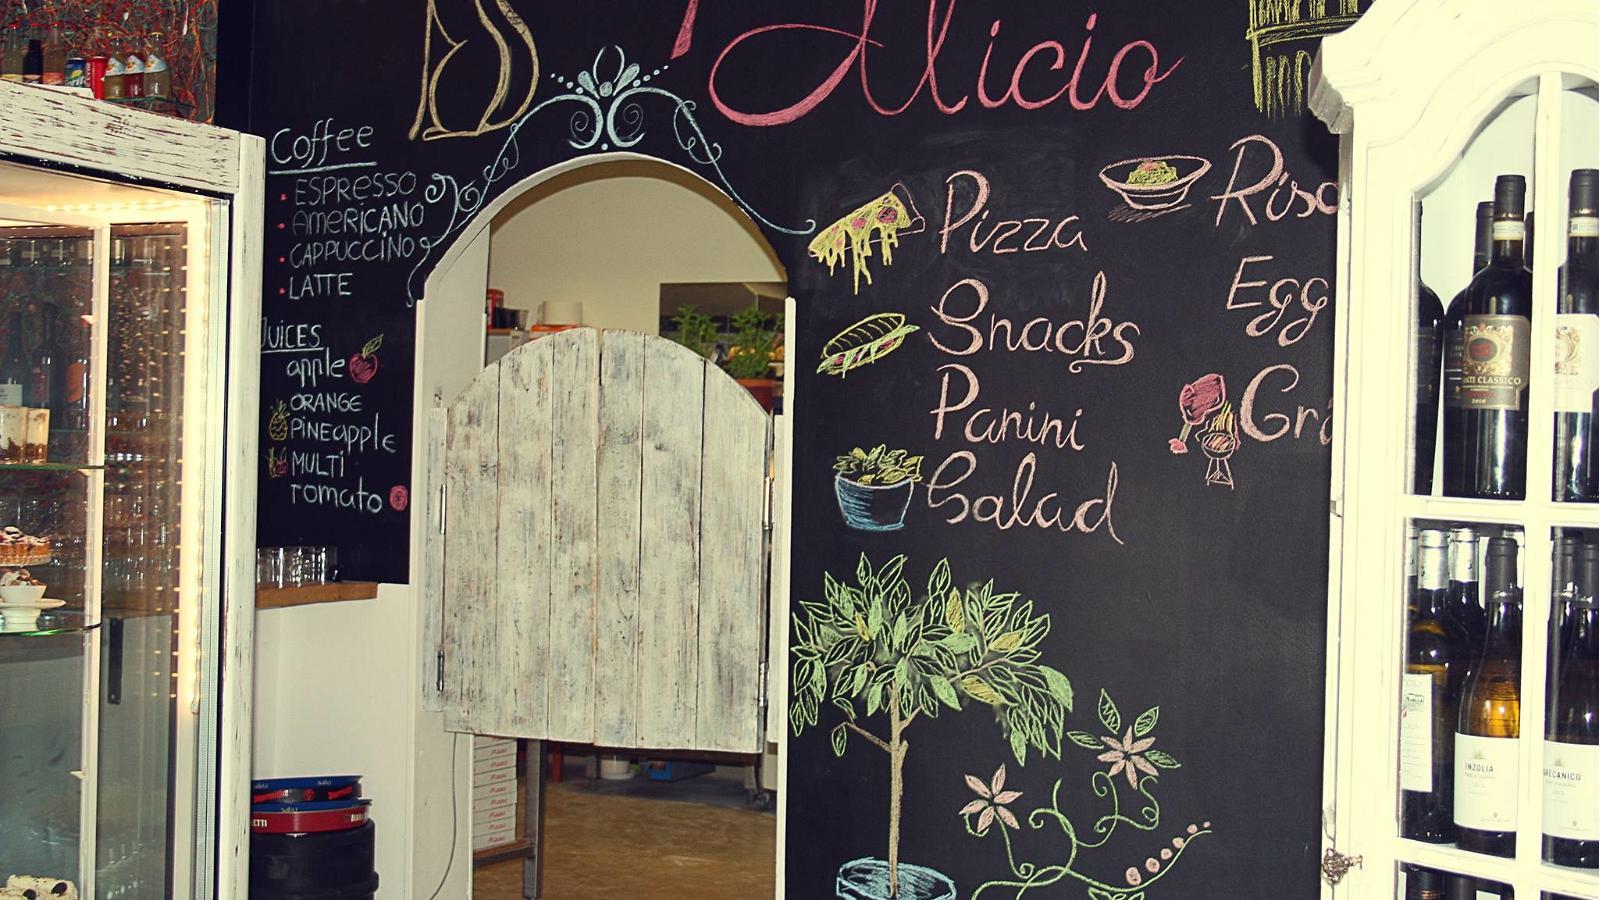 Alicio
Coffee
ESPRESSO
AMERICANO
CAPPUCCINO
LATTE
JUICES
apple
ORANGE
PINEapple
MULTI
Tomato
Pizza
Snacks
Panini
Salad
Riso
Egg
Gri
ANTI CLASSICO
2010
INZOLIA
GRECANICO